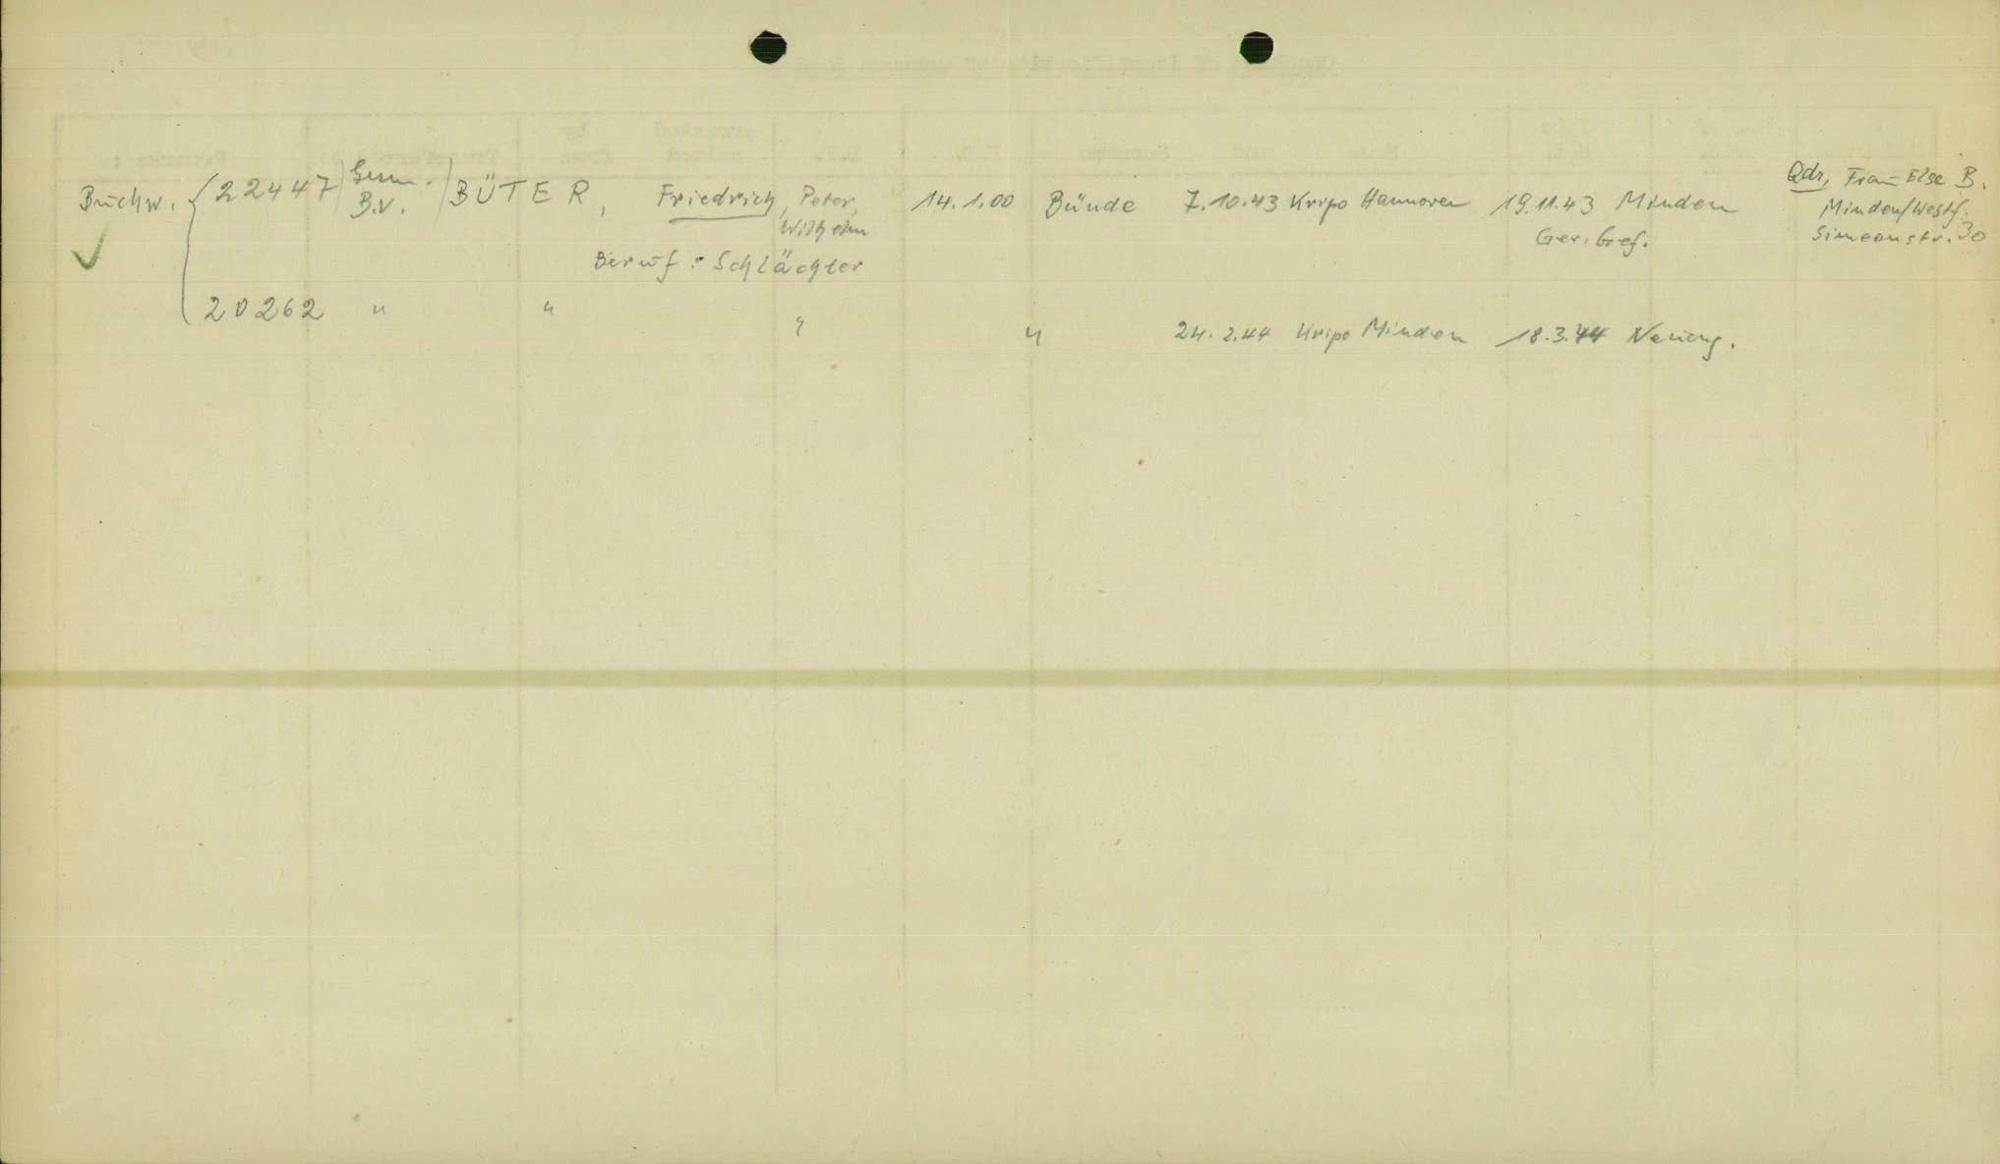 Buchw. { 22447 ) Germ. B.V. / BÜTER, Friedrich, Peter, Wilhelm 14.1.00 Bünde 7.10.43 Kripo Hannover 19.11.43 Minden Ger. Gef. Adr. Frau Else B. Minden/Westf. Simeonstr. 30
Beruf: Schlächter
20262 " " " " 24.2.44 Kripo Minden 18.3.44 Neueng.